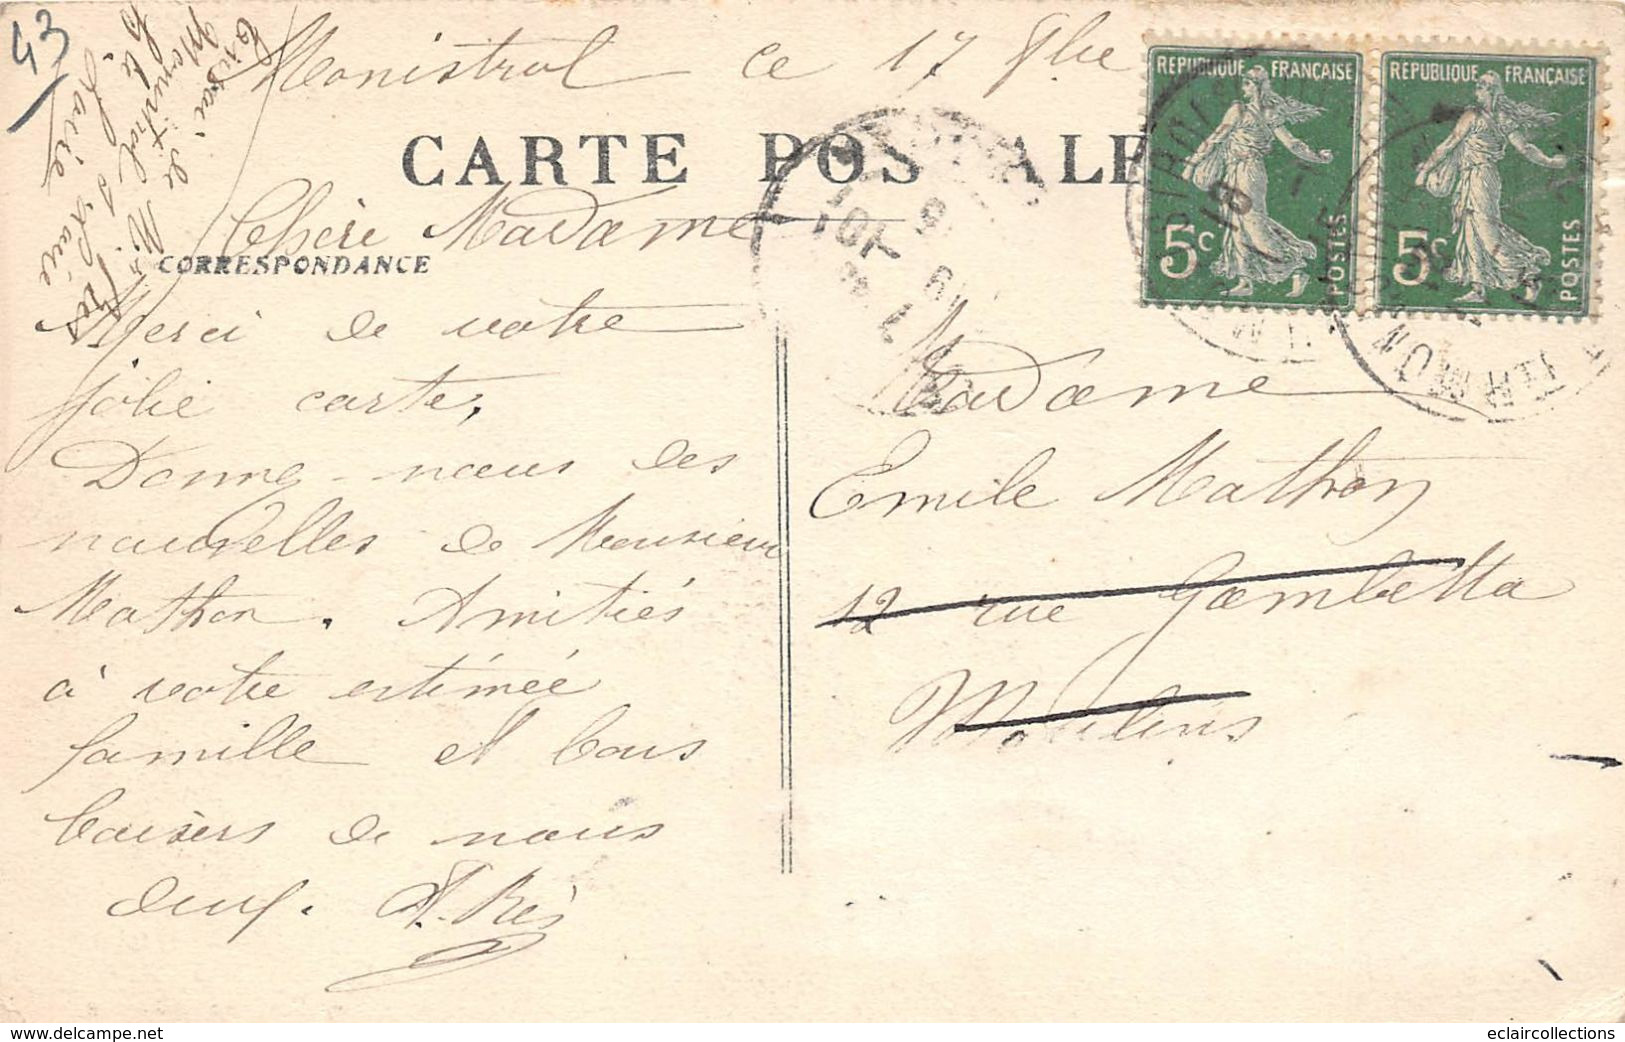 43
Monistrol ce 17
CARTE POSTALE
RÉPUBLIQUE FRANÇAISE
5c
POSTES
RÉPUBLIQUE FRANÇAISE
5c
POSTES
Chère Madame
CORRESPONDANCE
Merci de votre
jolie carte,
Donnez-nous des
nouvelles de Monsieur
Mathon. Amitiés
à votre estimée
famille et bons
baisers de nous
deux.
Madame
Emile Mathon
12 rue Gambetta
Moulins
www.delcampe.net
eclaircollections